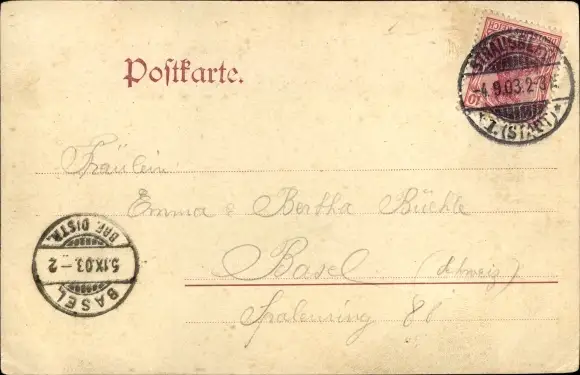 Postkarte.
STRAUSBERG
-4.9.03.2-3
*1.(STADT)*
10
Fräulein
Emma & Bertha Büchle
Basel (Schweiz)
Spalenring 86
BRF. DISTR.
5.IX.03.-2
BASEL